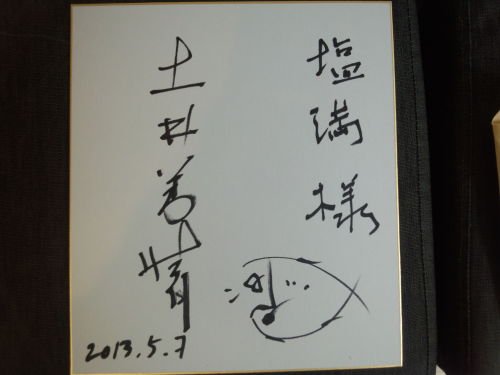 塩満様
土井善晴
2013.5.7